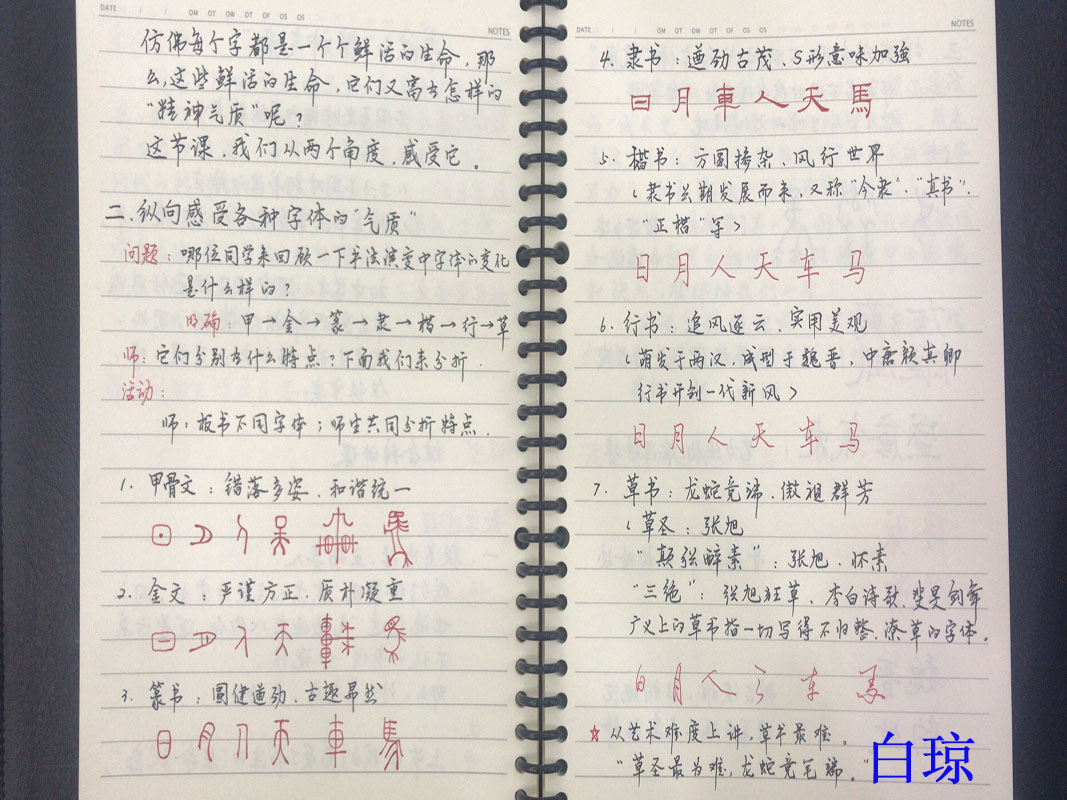 DATE
OM OT OW OT OF OS OS
NOTES
仿佛每个字都是一个个鲜活的生命，那
么，这些鲜活的生命，它们又富有怎样的
“精神气质”呢？
这节课，我们从两个角度，感受它。
二．纵向感受各种字体的“气质”
问题：哪位同学来回顾一下书法演变中字体的变化
是什么样的？
明确：甲→金→篆→隶→楷→行→草
师：它们分别有什么特点？下面我们来分析．
活动：
师：板书不同字体；师生共同分析特点．
1．甲骨文：错落多姿．和谐统一
2．金文：严谨方正．质朴凝重
3．篆书：圆健遒劲．古趣昂然
DATE
OM OT OW OT OF OS OS
NOTES
4．隶书：遒劲古茂．S形意味加强
日 月 車 人 天 馬
5．楷书：方圆掺杂．风行世界
〈隶书长期发展而来，又称“今隶”．“真书”．
“正楷”等〉
日 月 人 天 车 马
6．行书：追风逐云．实用美观
〈萌发于两汉，成型于魏晋，中唐颜真卿
行书开创一代新风〉
日 月 人 天 车 马
7．草书：龙蛇竞端．傲视群芳
〈草圣：张旭
“颠张醉素”：张旭．怀素
“三绝”：张旭狂草．李白诗歌．斐旻剑舞
广义上的草书指一切写得不归整、潦草的字体。
☆从艺术难度上讲，草书最难。
“草圣最为难，龙蛇竞笔端。”
白琼